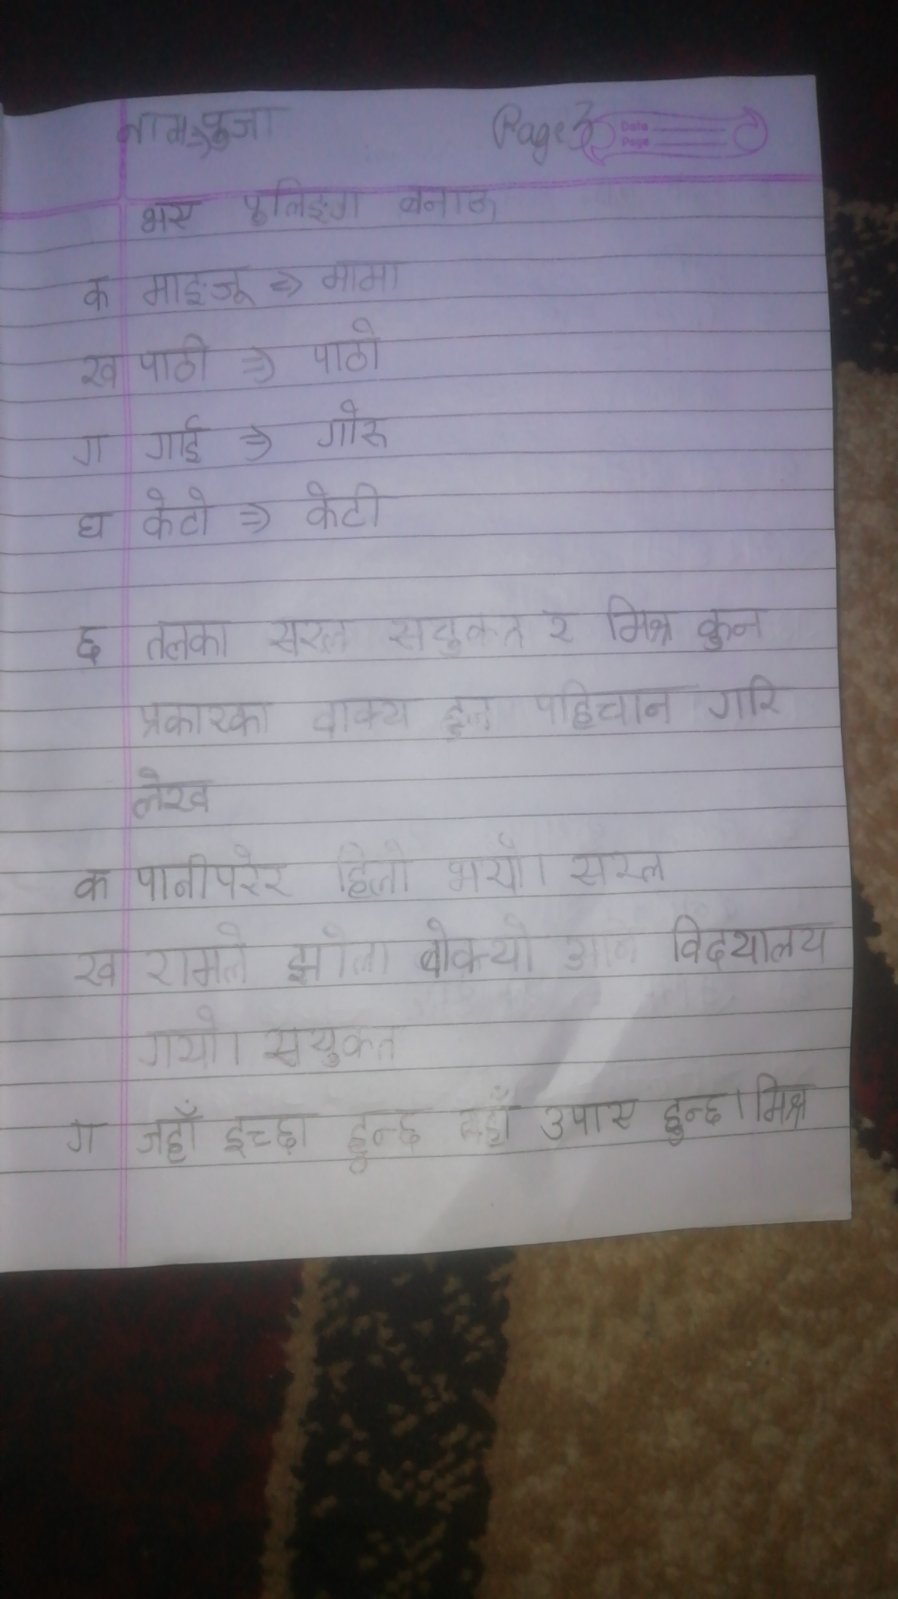 नाम⇒पुजा Page 3
Date
Page
भए पुलिङ्ग बनाऊ
क माइजू ⇒ मामा
ख पाठी ⇒ पाठो
ग गाई ⇒ गोरु
घ केटो ⇒ केटी
छ तलका सरल सयुक्त र मिश्र कुन
प्रकारका वाक्य हुन पहिचान गरि
लेख
क पानीपरेर हिलो भयो। सरल
ख रामले झोला बोक्यो अनि विदयालय
गयो। सयुक्त
ग जहाँ इच्छा हुन्छ त्यहाँ उपाए हुन्छ। मिश्र